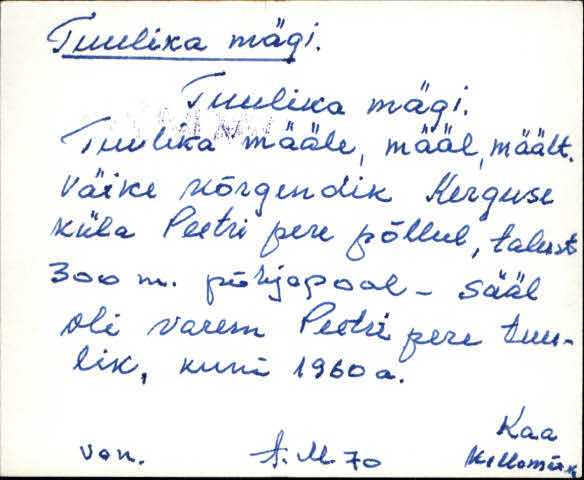 Tuulika mägi.
Tuulika mägi.
Tuulika määle, määl, mäält.
Väike kõrgendik Kerguse
küla Peetri pere põllul, talust
300 m. põhjapool - sääl
oli varem Peetri pere tuu-
lik, kuni 1960 a.
Kaa
van. A.M. 70